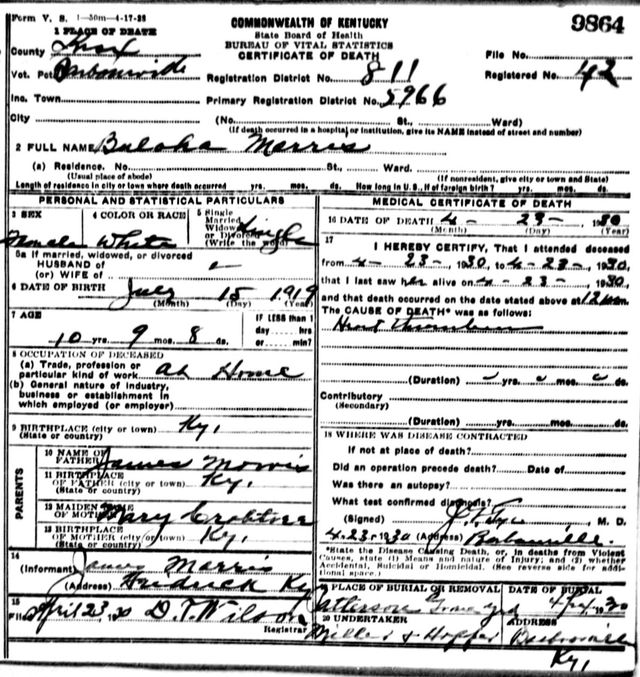 Form V. S. 1-50m-4-17-28
COMMONWEALTH OF KENTUCKY
State Board of Health
BUREAU OF VITAL STATISTICS
CERTIFICATE OF DEATH
9864
1 PLACE OF DEATH
County Knox
File No.
Vot. Pct.
Registration District No. 811
Registered No. 42
Inc. Town
Primary Registration District No. 5966
City (No. St., Ward)
(If death occurred in a hospital or institution, give its NAME instead of street and number)
2 FULL NAME Morris
(a) Residence. No. St., Ward.
(Usual place of abode) (If nonresident, give city or town and State)
Length of residence in city or town where death occurred yrs. mos. ds. How long in U. S., if of foreign birth? yrs. mos. ds.
PERSONAL AND STATISTICAL PARTICULARS
3 SEX Female
4 COLOR OR RACE White
5 Single Married Widowed or Divorced (Write the word) Single
5a If married, widowed, or divorced
HUSBAND of
(or) WIFE of
6 DATE OF BIRTH July 15, 1919
(Month) (Day) (Year)
7 AGE
10 yrs. 9 mos. 8 ds.
IF LESS than 1
day hrs
or min?
8 OCCUPATION OF DECEASED
(a) Trade, profession or
particular kind of work At Home
(b) General nature of industry,
business or establishment in
which employed (or employer)
9 BIRTHPLACE (city or town) Ky.
(State or country)
PARENTS
10 NAME OF
FATHER James Morris
11 BIRTHPLACE
OF FATHER (city or town) Ky.
(State or country)
12 MAIDEN NAME
OF MOTHER Mary Crabtree
13 BIRTHPLACE
OF MOTHER (city or town) Ky.
(State or country)
14
(Informant) James Morris
(Address) Ky
15
Filed April 23, 30 D. T. Wilson
Registrar
MEDICAL CERTIFICATE OF DEATH
16 DATE OF DEATH 4 - 23 - 1930
(Month) (Day) (Year)
17
I HEREBY CERTIFY, That I attended deceased
from 4 - 23 - 1930, to 4 - 23 -, 1930,
that I last saw her alive on 4 - 23 -, 1930,
and that death occurred on the date stated above at 12
The CAUSE OF DEATH* was as follows:
(Duration) yrs. mos. ds.
Contributory
(Secondary)
(Duration) yrs. mos. ds.
18 WHERE WAS DISEASE CONTRACTED
If not at place of death?
Did an operation precede death? Date of
Was there an autopsy?
What test confirmed diagnosis?
(Signed) M. D.
4-23-1930 (Address)
*State the Disease Causing Death, or, in deaths from Violent
Causes, state (1) Means and nature of Injury; and (2) whether
Accidental, Suicidal or Homicidal. (See reverse side for addi-
tional space.)
19 PLACE OF BURIAL OR REMOVAL DATE OF BURIAL
Patterson Graveyard 4/24, 1930
20 UNDERTAKER ADDRESS
Miller & Hopper
Ky.